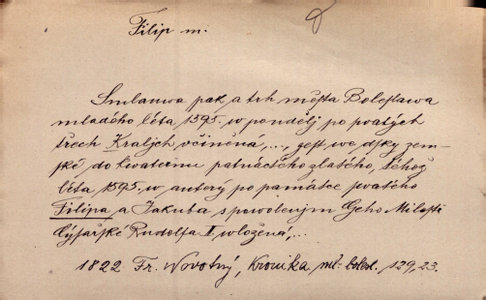 Filip m.
Smlauwa pak a trh města Boleslawa
mladého léta 1595. w pondělj po swatých
třech Králjch včiněná,..., gest we dsky zem-
ské do kwaternu patnáctého zlatého, téhož
léta 1595. w auterý po památce swatého
Filipa a Jakuba s powolenjm Geho Milosti
Cýsařské Rudolfa II. wložená,..
1822 Fr. Novotný, Kronika ml. bolesl. 129,23.